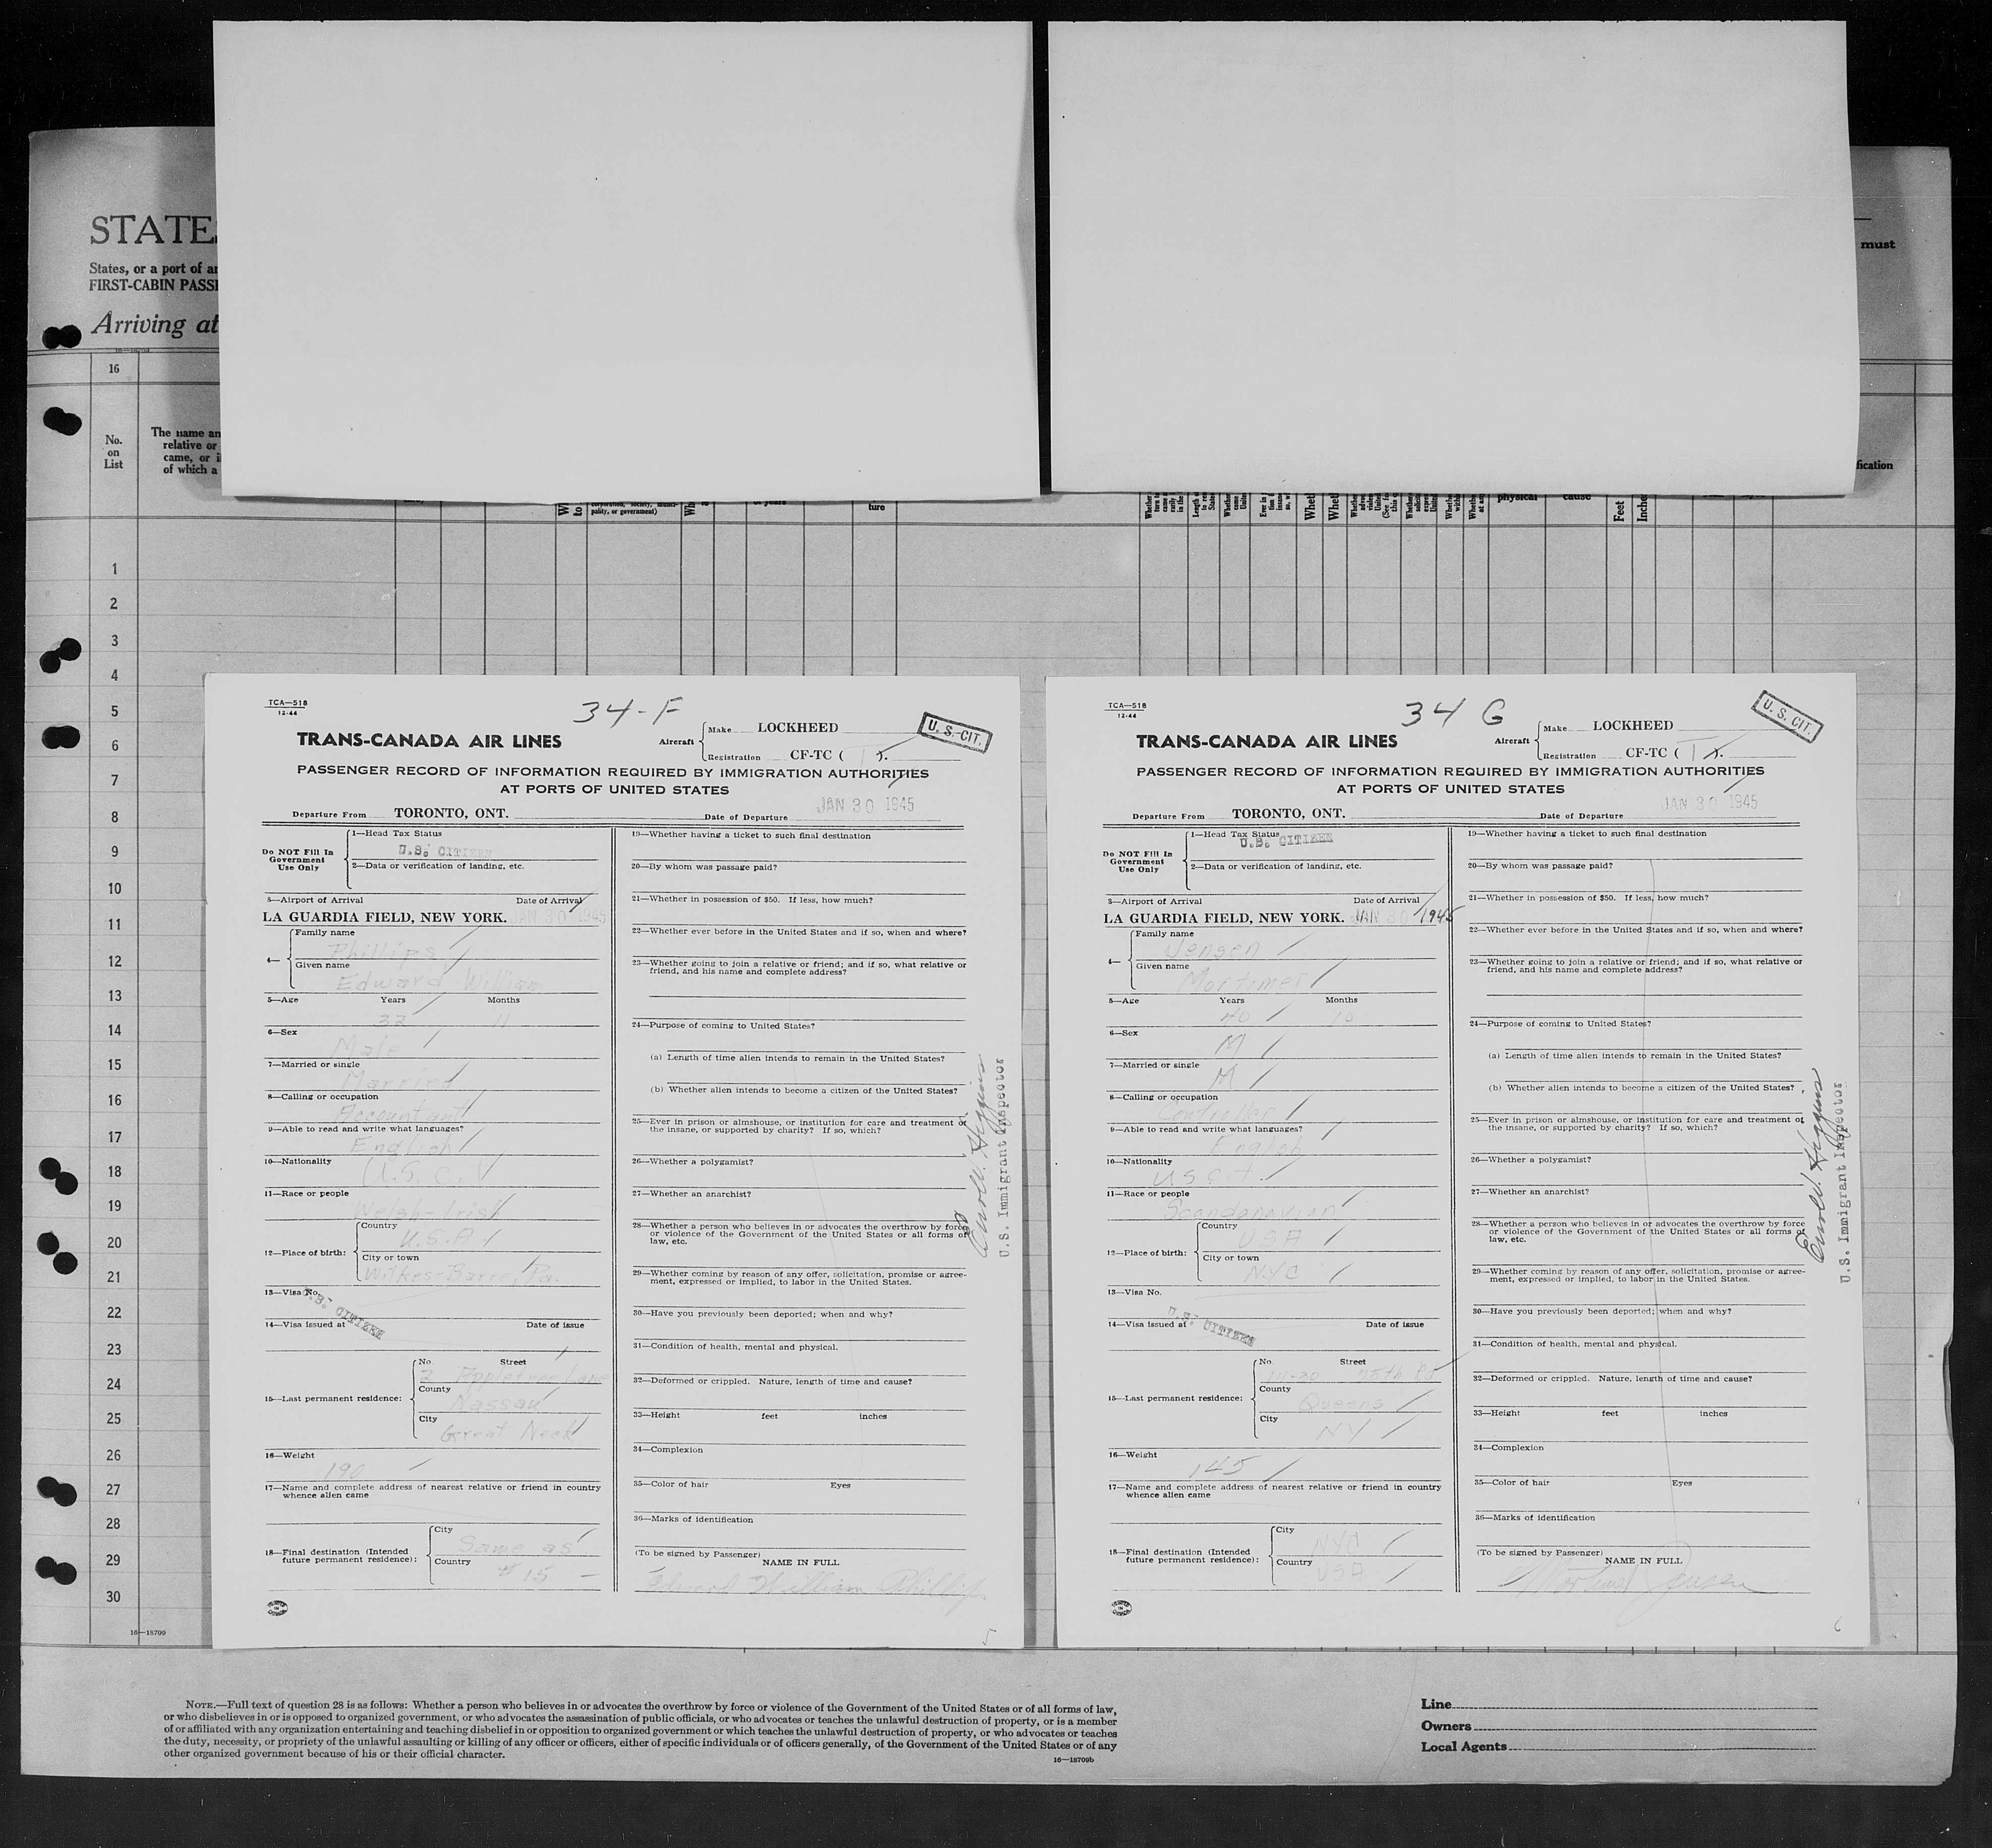 STATES
States, or a port of
FIRST-CABIN
Arriving at
must
16
No.
on
List
The name
relative or
came, or
of which a
pality, or government)
of years
ture
physical
cause
Feet
1
2
3
4
5
6
7
8
9
10
11
12
13
14
15
16
17
18
19
20
21
22
23
24
25
26
27
28
29
30
16—18709
TCA—518
12-44
34-F
TRANS-CANADA AIR LINES
Aircraft
Make LOCKHEED
Registration CF-TC ( T ).
U. S.-CIT.
PASSENGER RECORD OF INFORMATION REQUIRED BY IMMIGRATION AUTHORITIES
AT PORTS OF UNITED STATES
Departure From TORONTO, ONT. Date of Departure JAN 30 1945
Do NOT Fill In
Government
Use Only
1—Head Tax Status
U.S. CITIZEN
2—Data or verification of landing, etc.
3—Airport of Arrival Date of Arrival
LA GUARDIA FIELD, NEW YORK. JAN 30 1945
4—
Family name
Phillips
Given name
Edward William
5—Age Years Months
32 11
6—Sex
Male
7—Married or single
Married
8—Calling or occupation
Accountant
9—Able to read and write what languages?
English
10—Nationality
U.S.C.
11—Race or people
Welsh-Irish
12—Place of birth:
Country
U.S.A.
City or town
Wilkes-Barre, Pa.
13—Visa No.
U.S. CITIZEN
14—Visa issued at Date of issue
15—Last permanent residence:
No. Street
2 Appletree Lane
County
Nassau
City
Great Neck
16—Weight
190
17—Name and complete address of nearest relative or friend in country
whence alien came
18—Final destination (Intended
future permanent residence):
City
Same as
Country
# 15
19—Whether having a ticket to such final destination
20—By whom was passage paid?
21—Whether in possession of $50. If less, how much?
22—Whether ever before in the United States and if so, when and where?
23—Whether going to join a relative or friend; and if so, what relative or
friend, and his name and complete address?
24—Purpose of coming to United States?
(a) Length of time alien intends to remain in the United States?
(b) Whether alien intends to become a citizen of the United States?
25—Ever in prison or almshouse, or institution for care and treatment of
the insane, or supported by charity? If so, which?
26—Whether a polygamist?
27—Whether an anarchist?
28—Whether a person who believes in or advocates the overthrow by force
or violence of the Government of the United States or all forms of
law, etc.
29—Whether coming by reason of any offer, solicitation, promise or agree-
ment, expressed or implied, to labor in the United States.
30—Have you previously been deported; when and why?
31—Condition of health, mental and physical.
32—Deformed or crippled. Nature, length of time and cause?
33—Height feet inches
34—Complexion
35—Color of hair Eyes
36—Marks of identification
(To be signed by Passenger)
NAME IN FULL
Edward William Phillips
Higgins
U.S. Immigrant Inspector
5
TCA—518
12-44
34 G
TRANS-CANADA AIR LINES
Aircraft
Make LOCKHEED
Registration CF-TC ( T ).
U. S. CIT.
PASSENGER RECORD OF INFORMATION REQUIRED BY IMMIGRATION AUTHORITIES
AT PORTS OF UNITED STATES
Departure From TORONTO, ONT. Date of Departure JAN 30 1945
Do NOT Fill In
Government
Use Only
1—Head Tax Status
U.S. CITIZEN
2—Data or verification of landing, etc.
3—Airport of Arrival Date of Arrival
LA GUARDIA FIELD, NEW YORK. JAN 30 1945
4—
Family name
Jensen
Given name
Mortimer
5—Age Years Months
40 10
6—Sex
M
7—Married or single
M
8—Calling or occupation
Controller
9—Able to read and write what languages?
English
10—Nationality
US Cit.
11—Race or people
Scandanavian
12—Place of birth:
Country
USA
City or town
NYC
13—Visa No.
U.S. CITIZEN
14—Visa issued at Date of issue
15—Last permanent residence:
No. Street
75th
County
Queens
City
NY
16—Weight
145
17—Name and complete address of nearest relative or friend in country
whence alien came
18—Final destination (Intended
future permanent residence):
City
NYC
Country
USA
19—Whether having a ticket to such final destination
20—By whom was passage paid?
21—Whether in possession of $50. If less, how much?
22—Whether ever before in the United States and if so, when and where?
23—Whether going to join a relative or friend; and if so, what relative or
friend, and his name and complete address?
24—Purpose of coming to United States?
(a) Length of time alien intends to remain in the United States?
(b) Whether alien intends to become a citizen of the United States?
25—Ever in prison or almshouse, or institution for care and treatment of
the insane, or supported by charity? If so, which?
26—Whether a polygamist?
27—Whether an anarchist?
28—Whether a person who believes in or advocates the overthrow by force
or violence of the Government of the United States or all forms of
law, etc.
29—Whether coming by reason of any offer, solicitation, promise or agree-
ment, expressed or implied, to labor in the United States.
30—Have you previously been deported; when and why?
31—Condition of health, mental and physical.
32—Deformed or crippled. Nature, length of time and cause?
33—Height feet inches
34—Complexion
35—Color of hair Eyes
36—Marks of identification
(To be signed by Passenger)
NAME IN FULL
Mortimer Jensen
Higgins
U.S. Immigrant Inspector
NOTE.—Full text of question 28 is as follows: Whether a person who believes in or advocates the overthrow by force or violence of the Government of the United States or of all forms of law,
or who disbelieves in or is opposed to organized government, or who advocates the assassination of public officials, or who advocates or teaches the unlawful destruction of property, or is a member
of or affiliated with any organization entertaining and teaching disbelief in or opposition to organized government or which teaches the unlawful destruction of property, or who advocates or teaches
the duty, necessity, or propriety of the unlawful assaulting or killing of any officer or officers, either of specific individuals or of officers generally, of the Government of the United States or of any
other organized government because of his or their official character.
16—18709b
Line
Owners
Local Agents